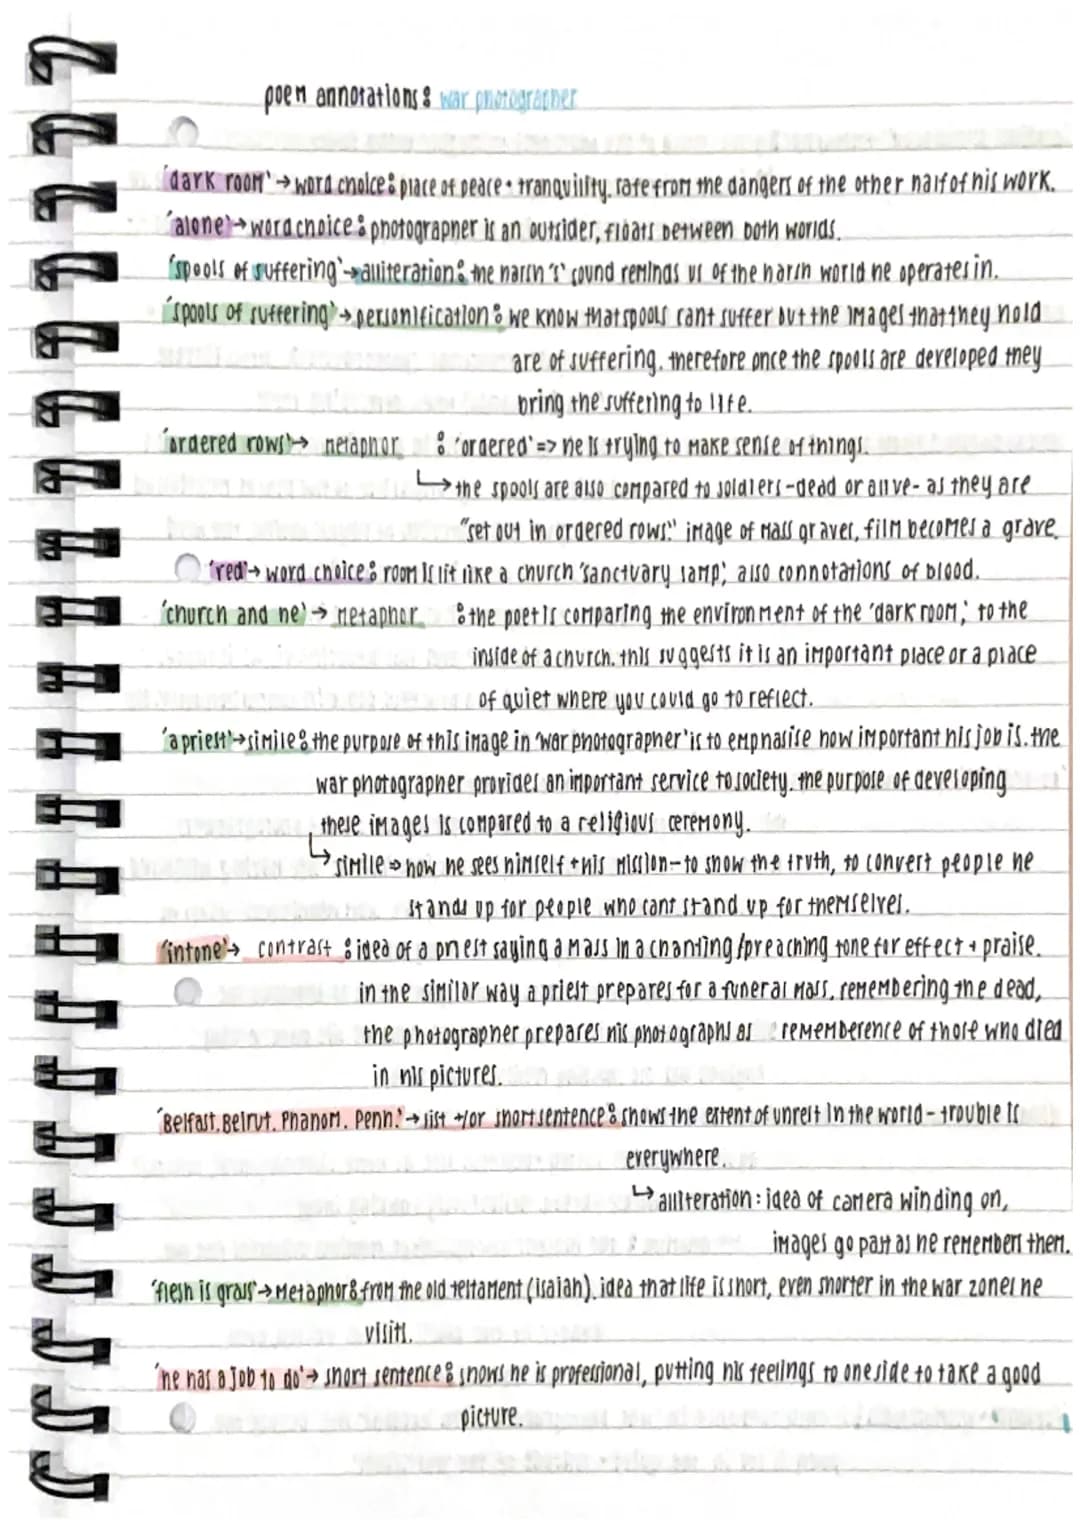 poem annotations: war photographer
'dark room' → word choice: place of peace + tranquility. safe from the dangers of the other half of his work.
'alone' → word choice: photographer is an outsider, floats between both worlds.
'spools of suffering' → alliteration: the harsh 's' sound reminds us of the harsh world he operates in.
'spools of suffering' → personification: we know that spools cant suffer but the images that they hold
are of suffering. therefore once the spools are developed they
bring the suffering to life.
'ordered rows' → metaphor : 'ordered' => he is trying to make sense of things.
↳ the spools are also compared to soldiers - dead or alive - as they are
"set out in ordered rows." image of mass graves, film becomes a grave.
'red' → word choice: room is lit like a church 'sanctuary lamp', also connotations of blood.
'church and he' → metaphor : the poet is comparing the environment of the 'dark room', to the
inside of a church. this suggests it is an important place or a place
of quiet where you could go to reflect.
'a priest' → simile: the purpose of this image in 'war photographer' is to emphasise how important his job is. the
war photographer provides an important service to society. the purpose of developing
these images is compared to a religious ceremony.
↳ simile => how he sees himself + his mission - to show the truth, to convert people he
stands up for people who cant stand up for themselves.
'intone' → contrast : idea of a priest saying a mass in a chanting/preaching tone for effect + praise.
in the similar way a priest prepares for a funeral mass, remembering the dead,
the photographer prepares his photographs as rememberence of those who died
in his pictures.
'Belfast. Beirut. Phanom. Penn.' → list +/or short sentence: shows the extent of unrest in the world - trouble is
everywhere.
↳ alliteration: idea of camera winding on,
images go past as he remembers them.
'flesh is grass' → metaphor: from the old testament (isaiah). idea that life is short, even shorter in the war zones he
visits.
'he has a job to do' → short sentence: shows he is professional, putting his feelings to one side to take a good
picture.